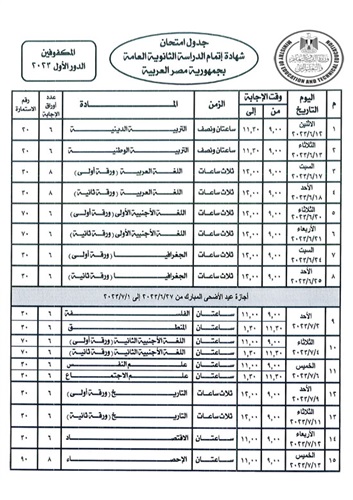 جدول امتحان
شهادة إتمام الدراسة الثانوية العامة
بجمهورية مصر العربية
المكفوفين
الدور الأول ٢٠٢٣
م اليوم التاريخ وقت الإجابة من إلى الزمن المادة عدد أوراق الاجابة رقم الاستمارة
١ الأثنين ٢٠٢٣/٦/١٢ ٩,٠٠ ١١,٣٠ ساعتان ونصف التربية الدينية ٦ ٣٠
٢ الثلاثاء ٢٠٢٣/٦/١٣ ٩,٠٠ ١١,٣٠ ساعتان ونصف التربية الوطنية ٦ ٣٠
٣ السبت ٢٠٢٣/٦/١٧ ٩,٠٠ ١٢,٠٠ ثلاث ساعات اللغة العربية (ورقة أولى) ٨ ٣٠
٤ الأحد ٢٠٢٣/٦/١٨ ٩,٠٠ ١٢,٠٠ ثلاث ساعات اللغة العربية (ورقة ثانية) ٨ ٣٠
٥ الثلاثاء ٢٠٢٣/٦/٢٠ ٩,٠٠ ١٢,٠٠ ثلاث ساعات اللغة الأجنبية الأولى (ورقة أولى) ٦ ٧٠
٦ الأربعاء ٢٠٢٣/٦/٢١ ٩,٠٠ ١٢,٠٠ ثلاث ساعات اللغة الأجنبية الأولى (ورقة ثانية) ٦ ٧٠
٧ السبت ٢٠٢٣/٦/٢٤ ٩,٠٠ ١٢,٠٠ ثلاث ساعات الجغرافيا (ورقة أولى) ٦ ٣٠
٨ الأحد ٢٠٢٣/٦/٢٥ ٩,٠٠ ١٢,٠٠ ثلاث ساعات الجغرافيا (ورقة ثانية) ٦ ٣٠
أجازة عيد الأضحى المبارك من ٢٠٢٣/٦/٢٧ إلى ٢٠٢٣/٧/١
٩ الأحد ٢٠٢٣/٧/٢ ٩,٠٠ ١١,٠٠ ساعتان الفلسفة ٦ ٣٠
١١,٣٠ ١,٣٠ ساعتان المنطق ٦ ٣٠
١٠ الثلاثاء ٢٠٢٣/٧/٤ ٩,٠٠ ١١,٠٠ ساعتان اللغة الأجنبية الثانية (ورقة أولى) ٦ ٧٠
١١,٣٠ ١,٣٠ ساعتان اللغة الأجنبية الثانية (ورقة ثانية) ٦ ٧٠
١١ الخميس ٢٠٢٣/٧/٦ ٩,٠٠ ١١,٠٠ ساعتان علم النفس ٦ ٣٠
١١,٣٠ ١,٣٠ ساعتان علم الاجتماع ٦ ٣٠
١٢ الأحد ٢٠٢٣/٧/٩ ٩,٠٠ ١٢,٠٠ ثلاث ساعات التاريخ (ورقة أولى) ٦ ٣٠
١٣ الثلاثاء ٢٠٢٣/٧/١١ ٩,٠٠ ١٢,٠٠ ثلاث ساعات التاريخ (ورقة ثانية) ٦ ٣٠
١٤ الأربعاء ٢٠٢٣/٧/١٢ ٩,٠٠ ١١,٠٠ ساعتان الاقتصاد ٦ ٣٠
١٥ الخميس ٢٠٢٣/٧/١٣ ٩,٠٠ ١١,٠٠ ساعتان الإحصاء ٨ ٩٠